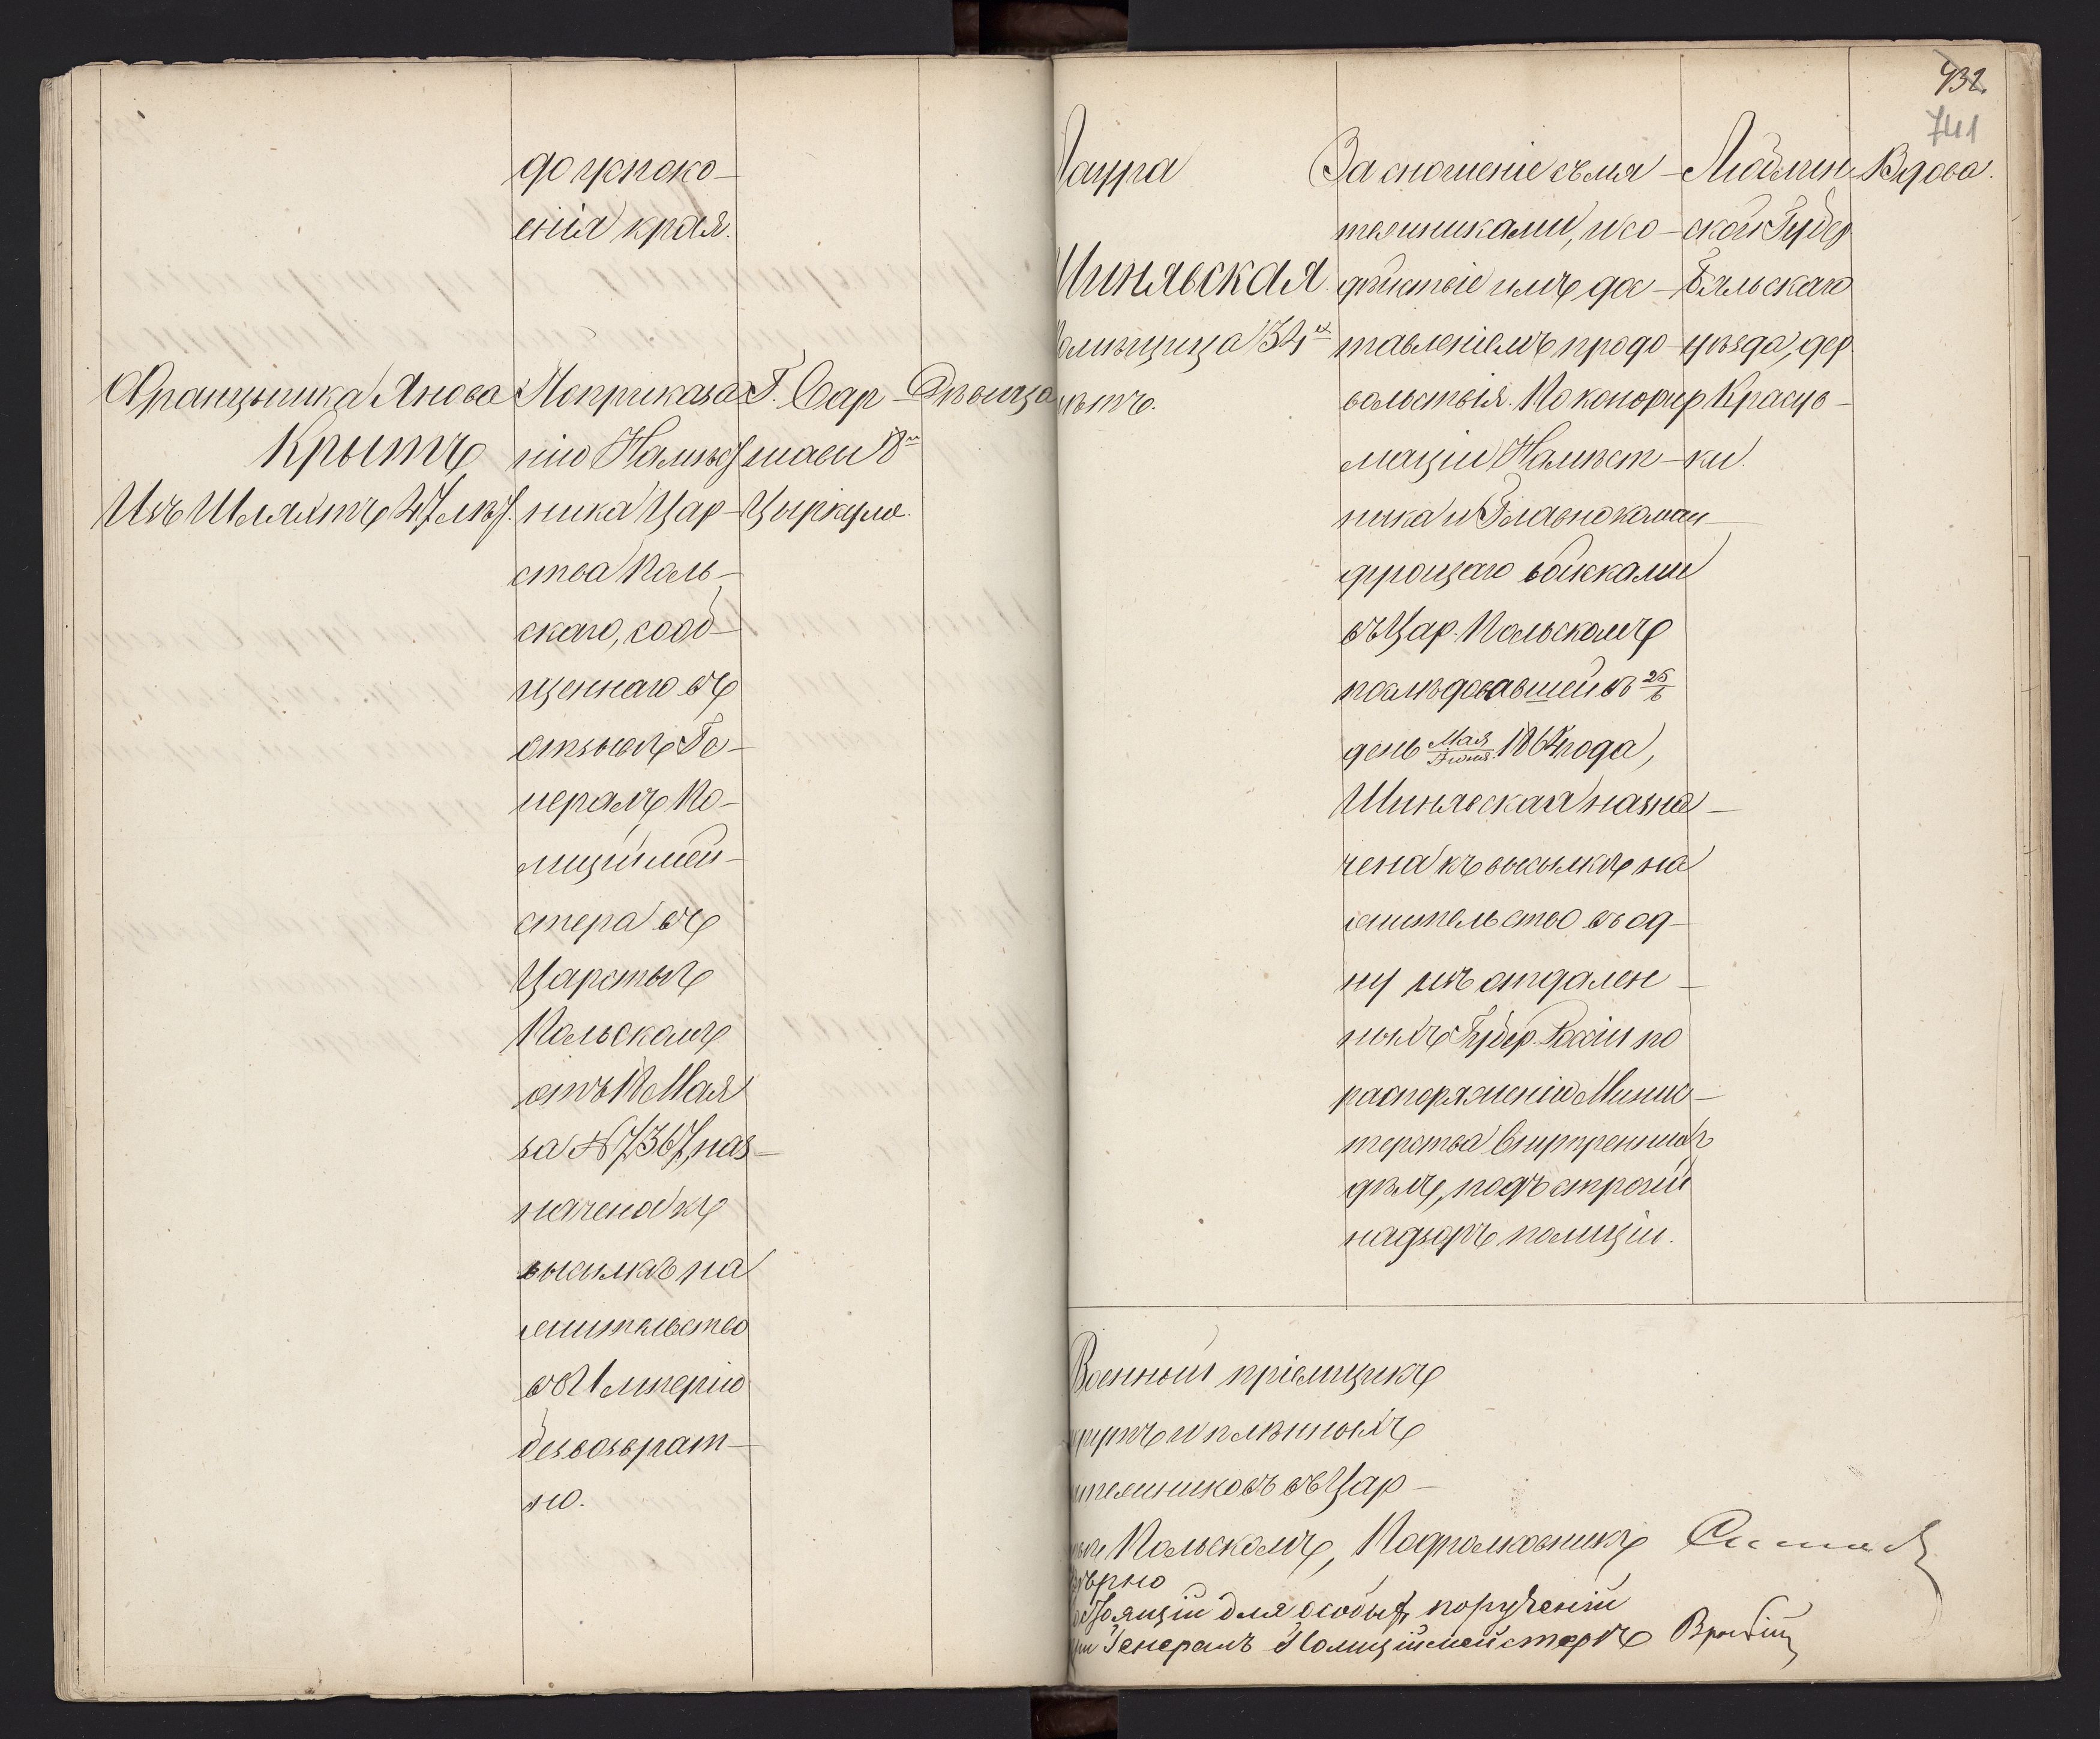 до успоко-
енія края.
Францышка Янова
Крытъ
Изъ Шляхтъ 47 лѣт.
По приказа-
нію Намѣст-
ника Цар-
ства Поль-
скаго, сооб-
щеннаго въ
отзывѣ Ге-
нералъ По-
лиціймей-
стера въ
Царствѣ
Польскомъ
отъ 18 Мая
за № 7367, наз-
начена къ
высылкѣ на
жительство
въ Имперію
безвозврат-
но.
Г. Вар-
шавы 8го
Циркула.
Дѣвица
432.
741
Лаура
Шинявская
Помѣщица 34хъ
лѣтъ.
За сношеніе съ мя-
тежниками, и со-
дѣйствіе имъ дос-
тавленіемъ продо-
вольствія. По конфир-
маціи Намѣст-
ника и Главнокоман-
дующаго войсками
въ Цар. Польскомъ
послѣдовавшей въ 25/6
день Мая/Іюня 1864 года,
Шинявская назна-
чена къ высылкѣ на
жительство въ од-
ну изъ отдален-
ныхъ Губер. Россіи по
распоряженію Минис-
терства Внутреннихъ
дѣлъ, подъ строгій
надзоръ полиціи.
Люблин-
ской Губер.
Бяльскаго
уѣзда, дер.
Красув-
ки.
Вдова.
Военный пріемщикъ
рутъ и плѣнныхъ
тежниковъ въ Цар-
твѣ Польскомъ, Подполковникъ
Вѣрно
Состоящій для особых порученій
при Генералъ Полиціймейстерѣ